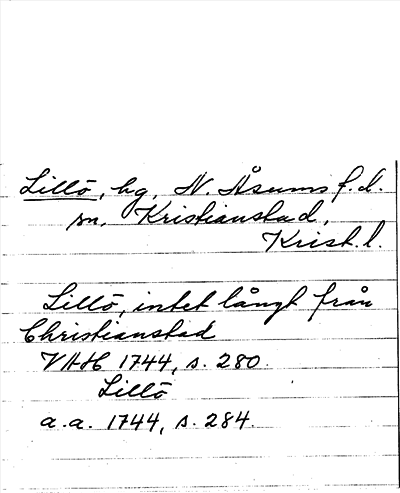 Lillö, hg, N. Åsums f.d.
sn, Kristianstad,
Krist. l.
Lillö, intet långt från
Christianstad
VHH 1744, s. 280.
Lillö
a.a. 1744, s. 284.